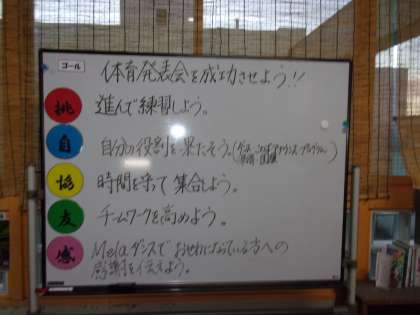 ゴール
体育発表会を成功させよう!!
挑
進んで練習しよう。
自
自分の役割を果たそう。
協
時間を守って集合しよう。
友
チームワークを高めよう。
感
ダンスでお世話になっている方への
感謝を伝えよう。